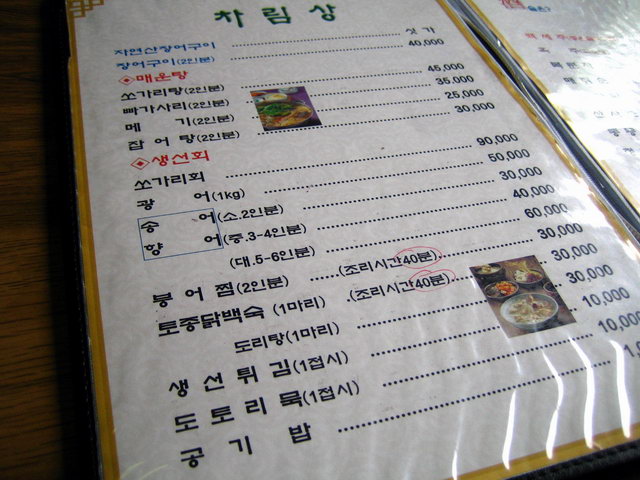 차림상
자연산장어구이 싯 가
장어구이(2인분) 40,000
◈매운탕
쏘가리탕(2인분) 45,000
빠가사리(2인분) 35,000
메 기(2인분) 25,000
잡 어 탕(2인분) 30,000
◈생선회
쏘가리회 90,000
광 어(1kg) 50,000
송 어(소.2인분) 30,000
향 어(중.3-4인분) 40,000
(대.5-6인분) 60,000
붕 어 찜(2인분) (조리시간40분) 30,000
토종닭백숙 (1마리) (조리시간40분) 30,000
도리탕(1마리) 30,000
생 선 튀 김(1접시) 10,000
도 토 리 묵(1접시) 10,000
공 기 밥